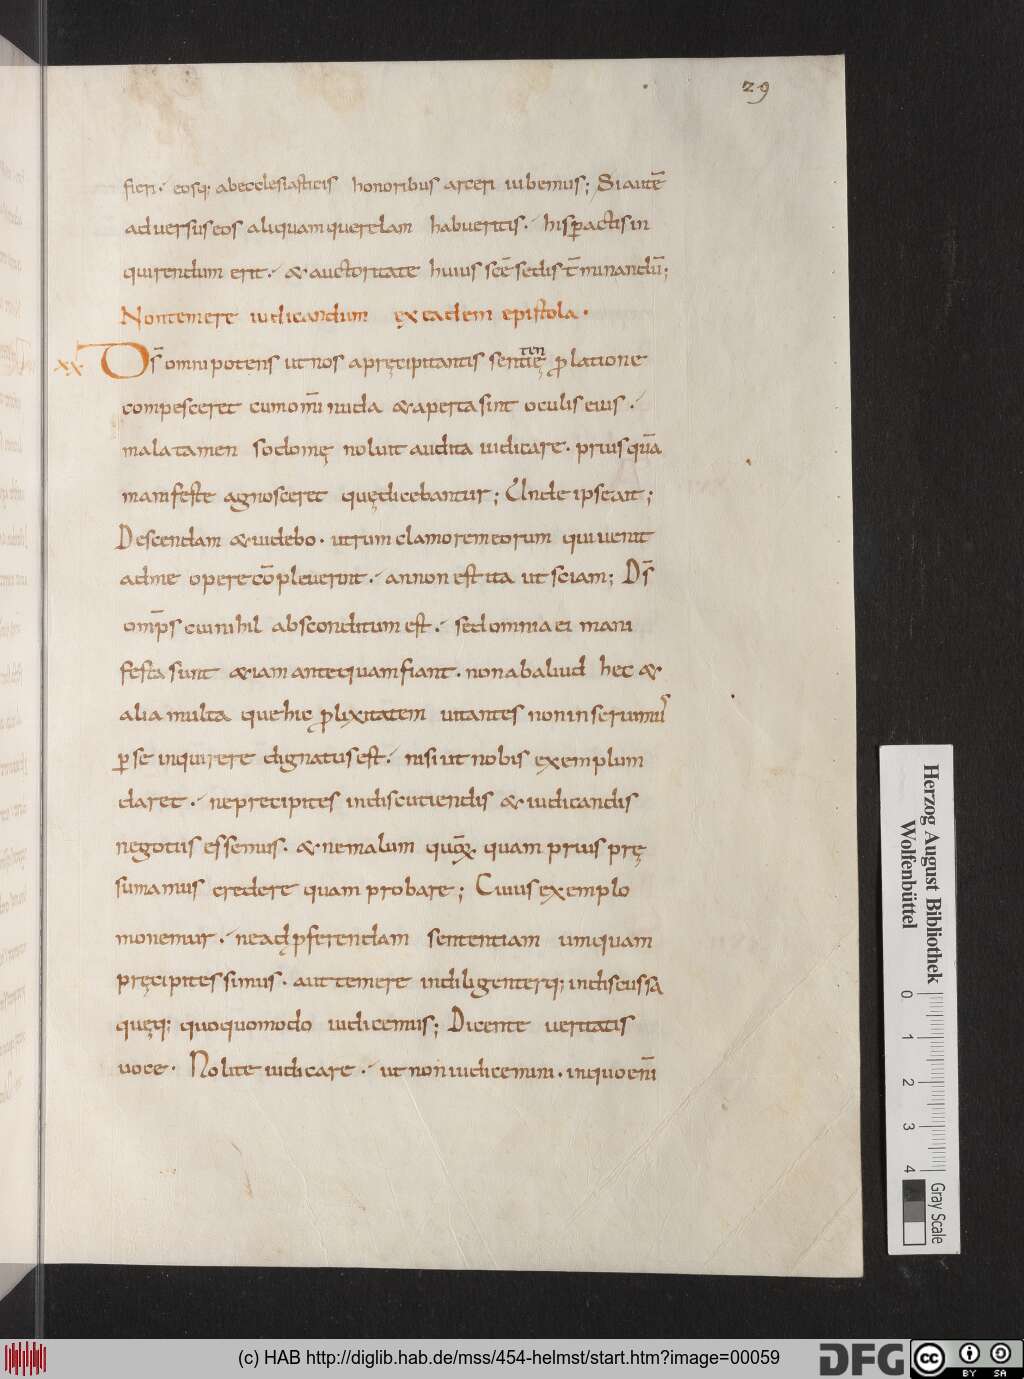 29
fieri· eosq; abecclesiasticis honoribus arceri iubemus; Siautē
aduersuseos aliquamquerelam habueritis· hisꝑactisin
quirendum erit· & auctoritate huius scē sedis t̄minandū;
Nontemere iudicandum ex eadem epistola·
xx· Ds̄ omnipotens ut nos a pręcipitantis sentiętен ꝓlatione
compesceret cumom̄i nuda & apertasint oculis eius·
mala tamen sodomę noluit audita iudicare· priusquā
manifeste agnosceret quędicebantur; Unde ipse ait;
Descendam & uidebo· utrum clamoremeorum qui uenit
adme opere cōpleuerint· annon est ita ut sciam; Ds̄
om̄ps cui nihil absconditum est· sed omnia ei mani
festa sunt & iam antequam fiant· non abaliud hec &
alia multa que hic ꝓlixitatem uitantes non inseruimus
ꝑse inquirere dignatus est· nisi ut nobis exemplum
daret· neprecipites indiscutiendis & iudicandis
negotiis essemus· & nemalum quōꝝ· quam prius prę
sumamus credere quam probare; Cuius exemplo
monemur· neadꝓferendam sententiam umquam
pręcipites simus· aut temere indiligenterq; indiscussa
quęq; quoquomodo iudicemus; Dicente ueritatis
uoce· Nolite iudicare· ut non iudicemini· inquo eni̅
Herzog August Bibliothek
Wolfenbüttel
0 1 2 3 4
Gray Scale
(c) HAB http://diglib.hab.de/mss/454-helmst/start.htm?image=00059
DFG
cc BY SA